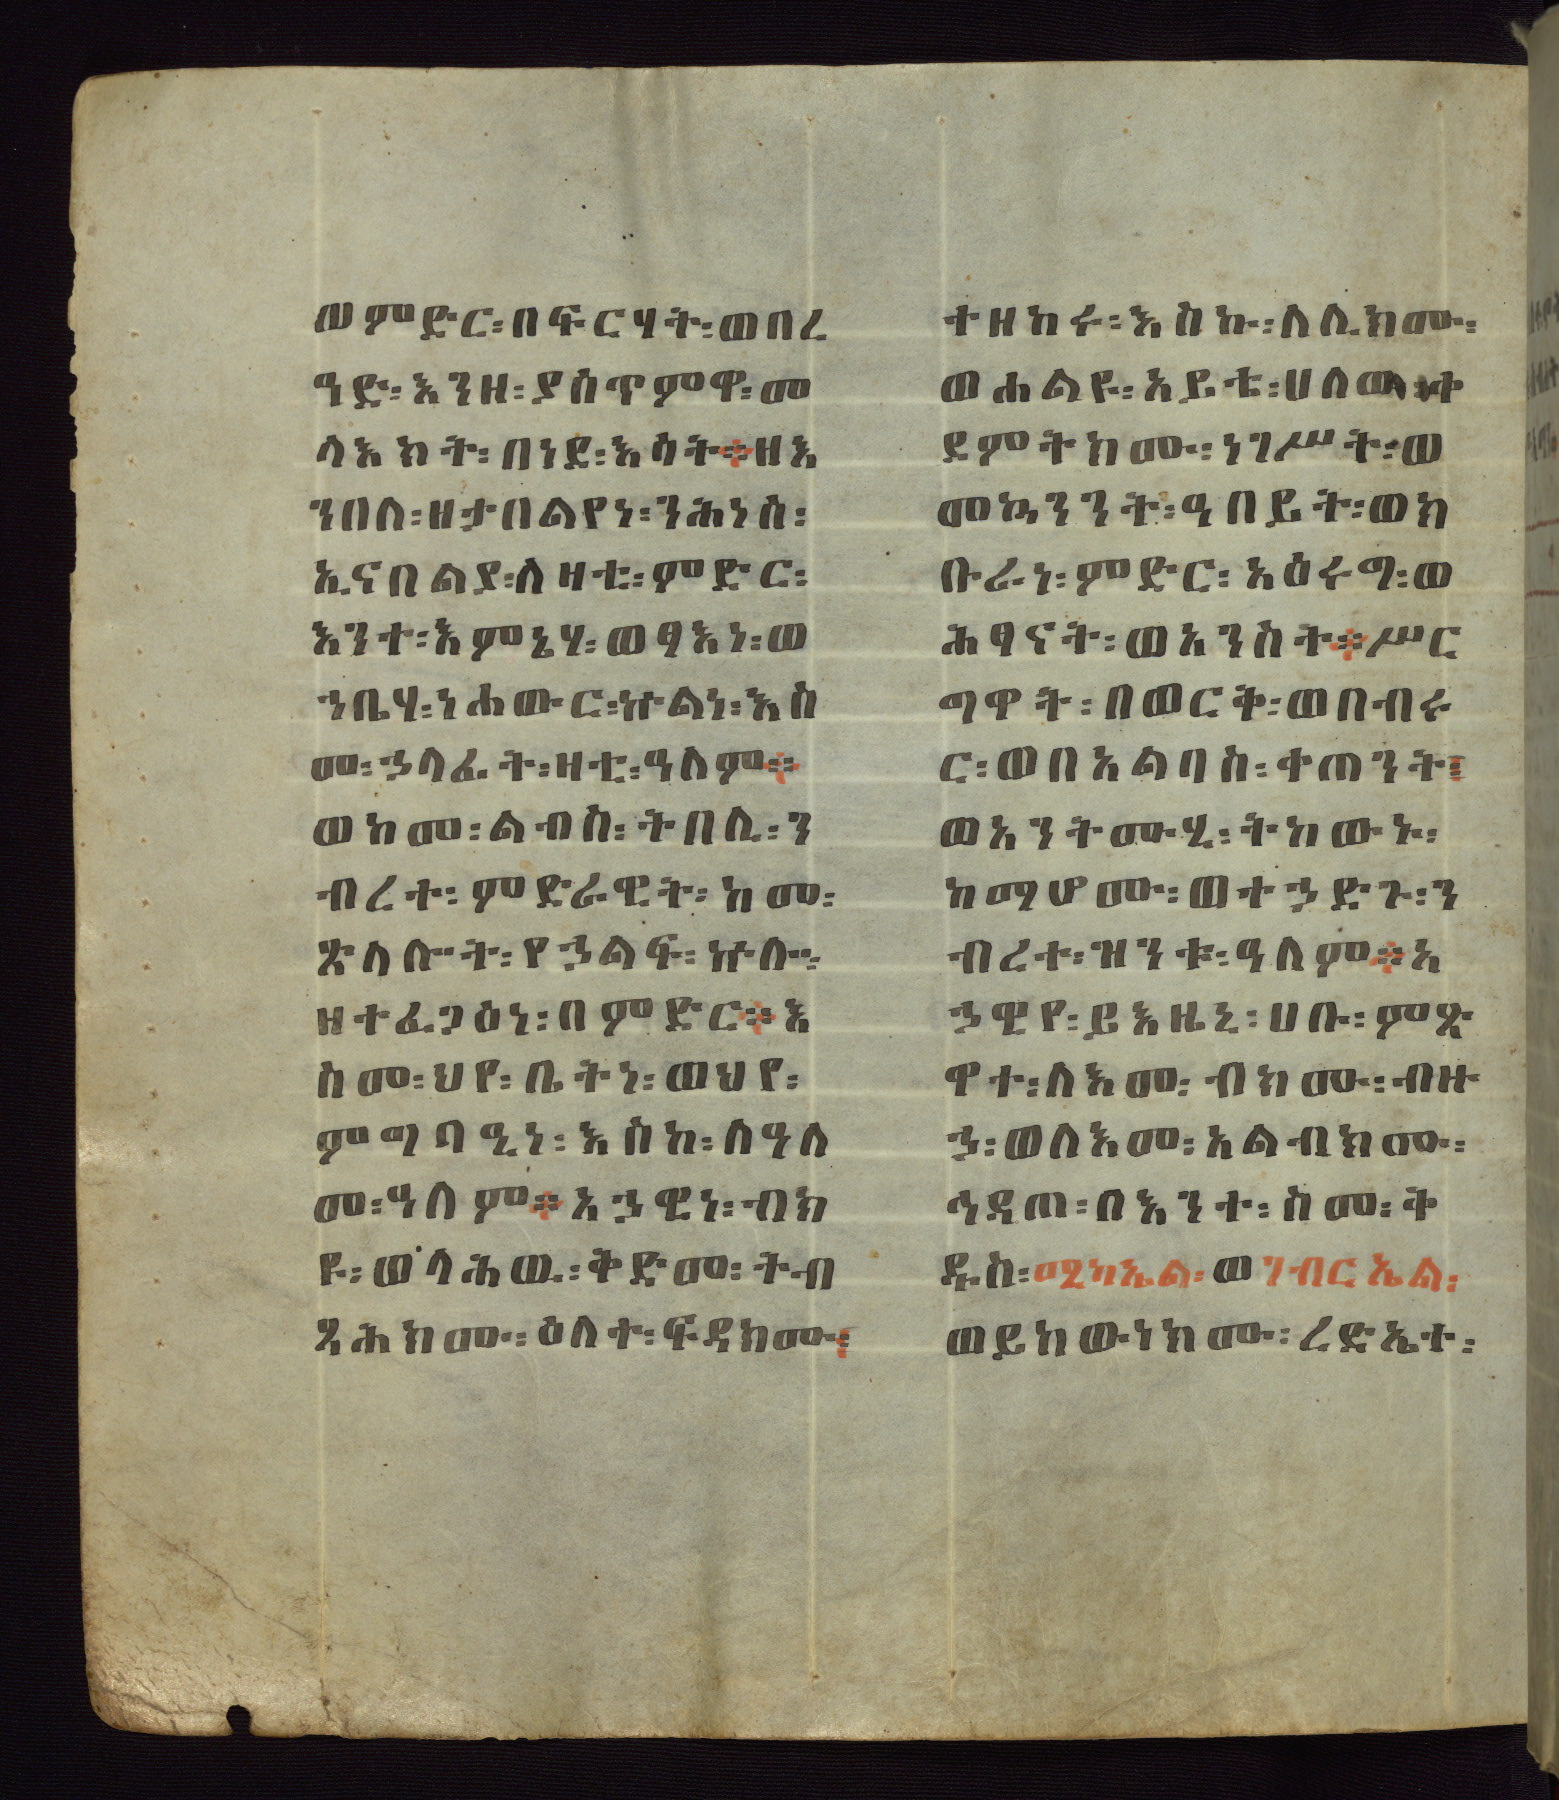 ወምድር፡በፍርሃት፡ወበረ
ዓድ፡እንዘ፡ያስጥምዋ፡መ
ላእክት፡በነደ፡እሳት፨ዘእ
ንበለ፡ዘታበልየነ፡ንሕነሰ፡
ኢናበልያ፡ለዛቲ፡ምድር፡
እንተ፡እምኔሃ፡ወፃእነ፡ወ
ኀቤሃ፡ነሐውር፡ኵልነ፡እስ
መ፡ኃላፊት፡ዛቲ፡ዓለም፨
ወከመ፡ልብስ፡ትበሊ፡ን
ብረተ፡ምድራዊት፡ከመ፡
ጽላሎት፡የኃልፍ፡ኵሉ፡
ዘተፈጋዕነ፡በምድር፨እ
ስመ፡ህየ፡ቤትነ፡ወህየ፡
ምግባዒነ፡እስከ፡ለዓለ
መ፡ዓለም፨አኃዊነ፡ብክ
ዩ፡ወላሕዉ፡ቅድመ፡ትብ
ጻሕክሙ፡ዕለተ፡ፍዳክሙ፡
ተዘከሩ፡እስኩ፡ለሊክሙ፡
ወሐልዩ፡አይቴ፡ሀለዉ፡ቀ
ደምትክሙ፡ነገሥት፡ወ
መኳንንት፡ዓበይት፡ወክ
ቡራነ፡ምድር፡አዕሩግ፡ወ
ሕፃናት፡ወአንስት፨ሥር
ግዋት፡በወርቅ፡ወበብሩ
ር፡ወበአልባስ፡ቀጠንት፡
ወአንትሙሂ፡ትከውኑ፡
ከማሆሙ፡ወተኃድጉ፡ን
ብረተ፡ዝንቱ፡ዓለም፨አ
ኃዊየ፡ይእዜኒ፡ሀቡ፡ምጽ
ዋተ፡ለእመ፡ብክሙ፡ብዙ
ኃ፡ወለእመ፡አልብክሙ፡
ኅዳጠ፡በእንተ፡ስመ፡ቅ
ዱስ፡ሚካኤል፡ወገብርኤል፡
ወይከውነክሙ፡ረድኤተ፡